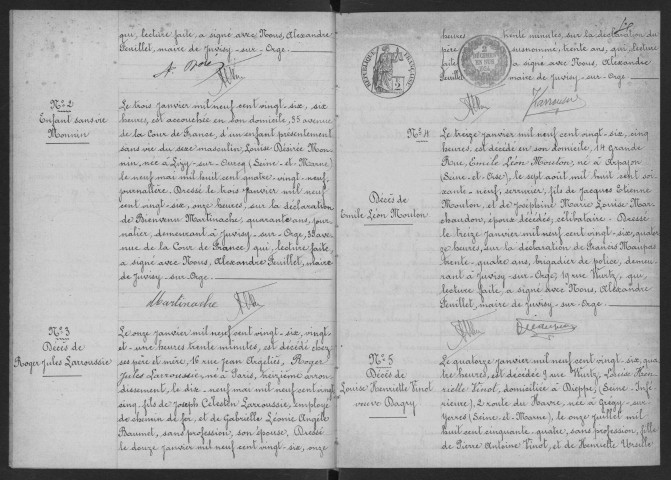 qui, lecture faite, a signé avec Nous, Alexandre
Feuillet, maire de Juvisy-sur-Orge.
N° 2
Enfant sans vie
Monnin
Le trois janvier mil neuf cent vingt-six, six
heures, est accouchée en son domicile, 35 avenue
de la Cour de France, d'un enfant présentement
sans vie du sexe masculin, Louise Désirée Mon-
nin, née à Lizy-sur-Ourcq (Seine-et-Marne)
le neuf mai mil huit cent quatre-vingt-neuf,
journalière. Dressé le trois janvier mil neuf
cent vingt-six, onze heures, sur la déclaration
de Bienvenu Martinache, quarante ans, jour-
nalier, demeurant à Juvisy-sur-Orge, 35 ave-
nue de la Cour de France, qui, lecture faite,
a signé avec Nous, Alexandre Feuillet, maire
de Juvisy-sur-Orge.
Martinache
N° 3
Décès de
Roger Jules Larroussie
Le onze janvier mil neuf cent vingt-six, vingt-
et-une heures trente minutes, est décédé chez
ses père et mère, 16 rue Jean Argeliès, Roger
Jules Larroussie, né à Paris, treizième arron-
dissement, le dix-neuf mai mil neuf cent vingt-
cinq, fils de Joseph Célestin Larroussie, employé
de chemin de fer, et de Gabrielle Léonie Angèle
Baumet, sans profession, son épouse. Dressé
le douze janvier mil neuf cent vingt-six, onze
heures trente minutes, sur la déclaration du
père susnommé, trente ans, qui, lecture
faite a signé avec Nous, Alexandre
Feuillet maire de Juvisy-sur-Orge
RÉPUBLIQUE FRANÇAISE
Larroussie
N° 4
Décès de
Emile Léon Moulon
Le treize janvier mil neuf cent vingt-six, cinq
heures, est décédé en son domicile, 14 Grande
Rue, Emile Léon Moulon, né à Arpajon
(Seine-et-Oise), le sept août mil huit cent soi-
xante-neuf, serrurier, fils de Jacques Etienne
Moulon, et de Joséphine Marie Louise Mar-
chandon, époux décédés, célibataire. Dressé
le treize janvier mil neuf cent vingt-six, quator-
ze heures, sur la déclaration de Francis Maupas
trente-quatre ans, brigadier de police, demeu-
rant à Juvisy-sur-Orge, 19 rue Wurtz, qui,
lecture faite, a signé avec Nous, Alexandre
Feuillet, maire de Juvisy-sur-Orge.
N° 5
Décès de
Louise Henriette Vinot
veuve Dagry
Le quatorze janvier mil neuf cent vingt-six, qua-
tre heures, est décédée 9 rue Wurtz, Louise Hen-
riette Vinot, domiciliée à Dieppe, (Seine-Infé-
rieure), 2 route du Havre, née à Grégy-sur-
Yerres (Seine-et-Marne), le onze juillet mil
huit cent cinquante-quatre, sans profession, fille
de Pierre Antoine Vinot, et de Henriette Ursule